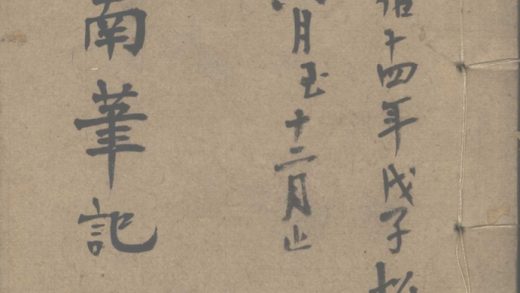 緒十四年戊子松
月至十二月止
南筆記